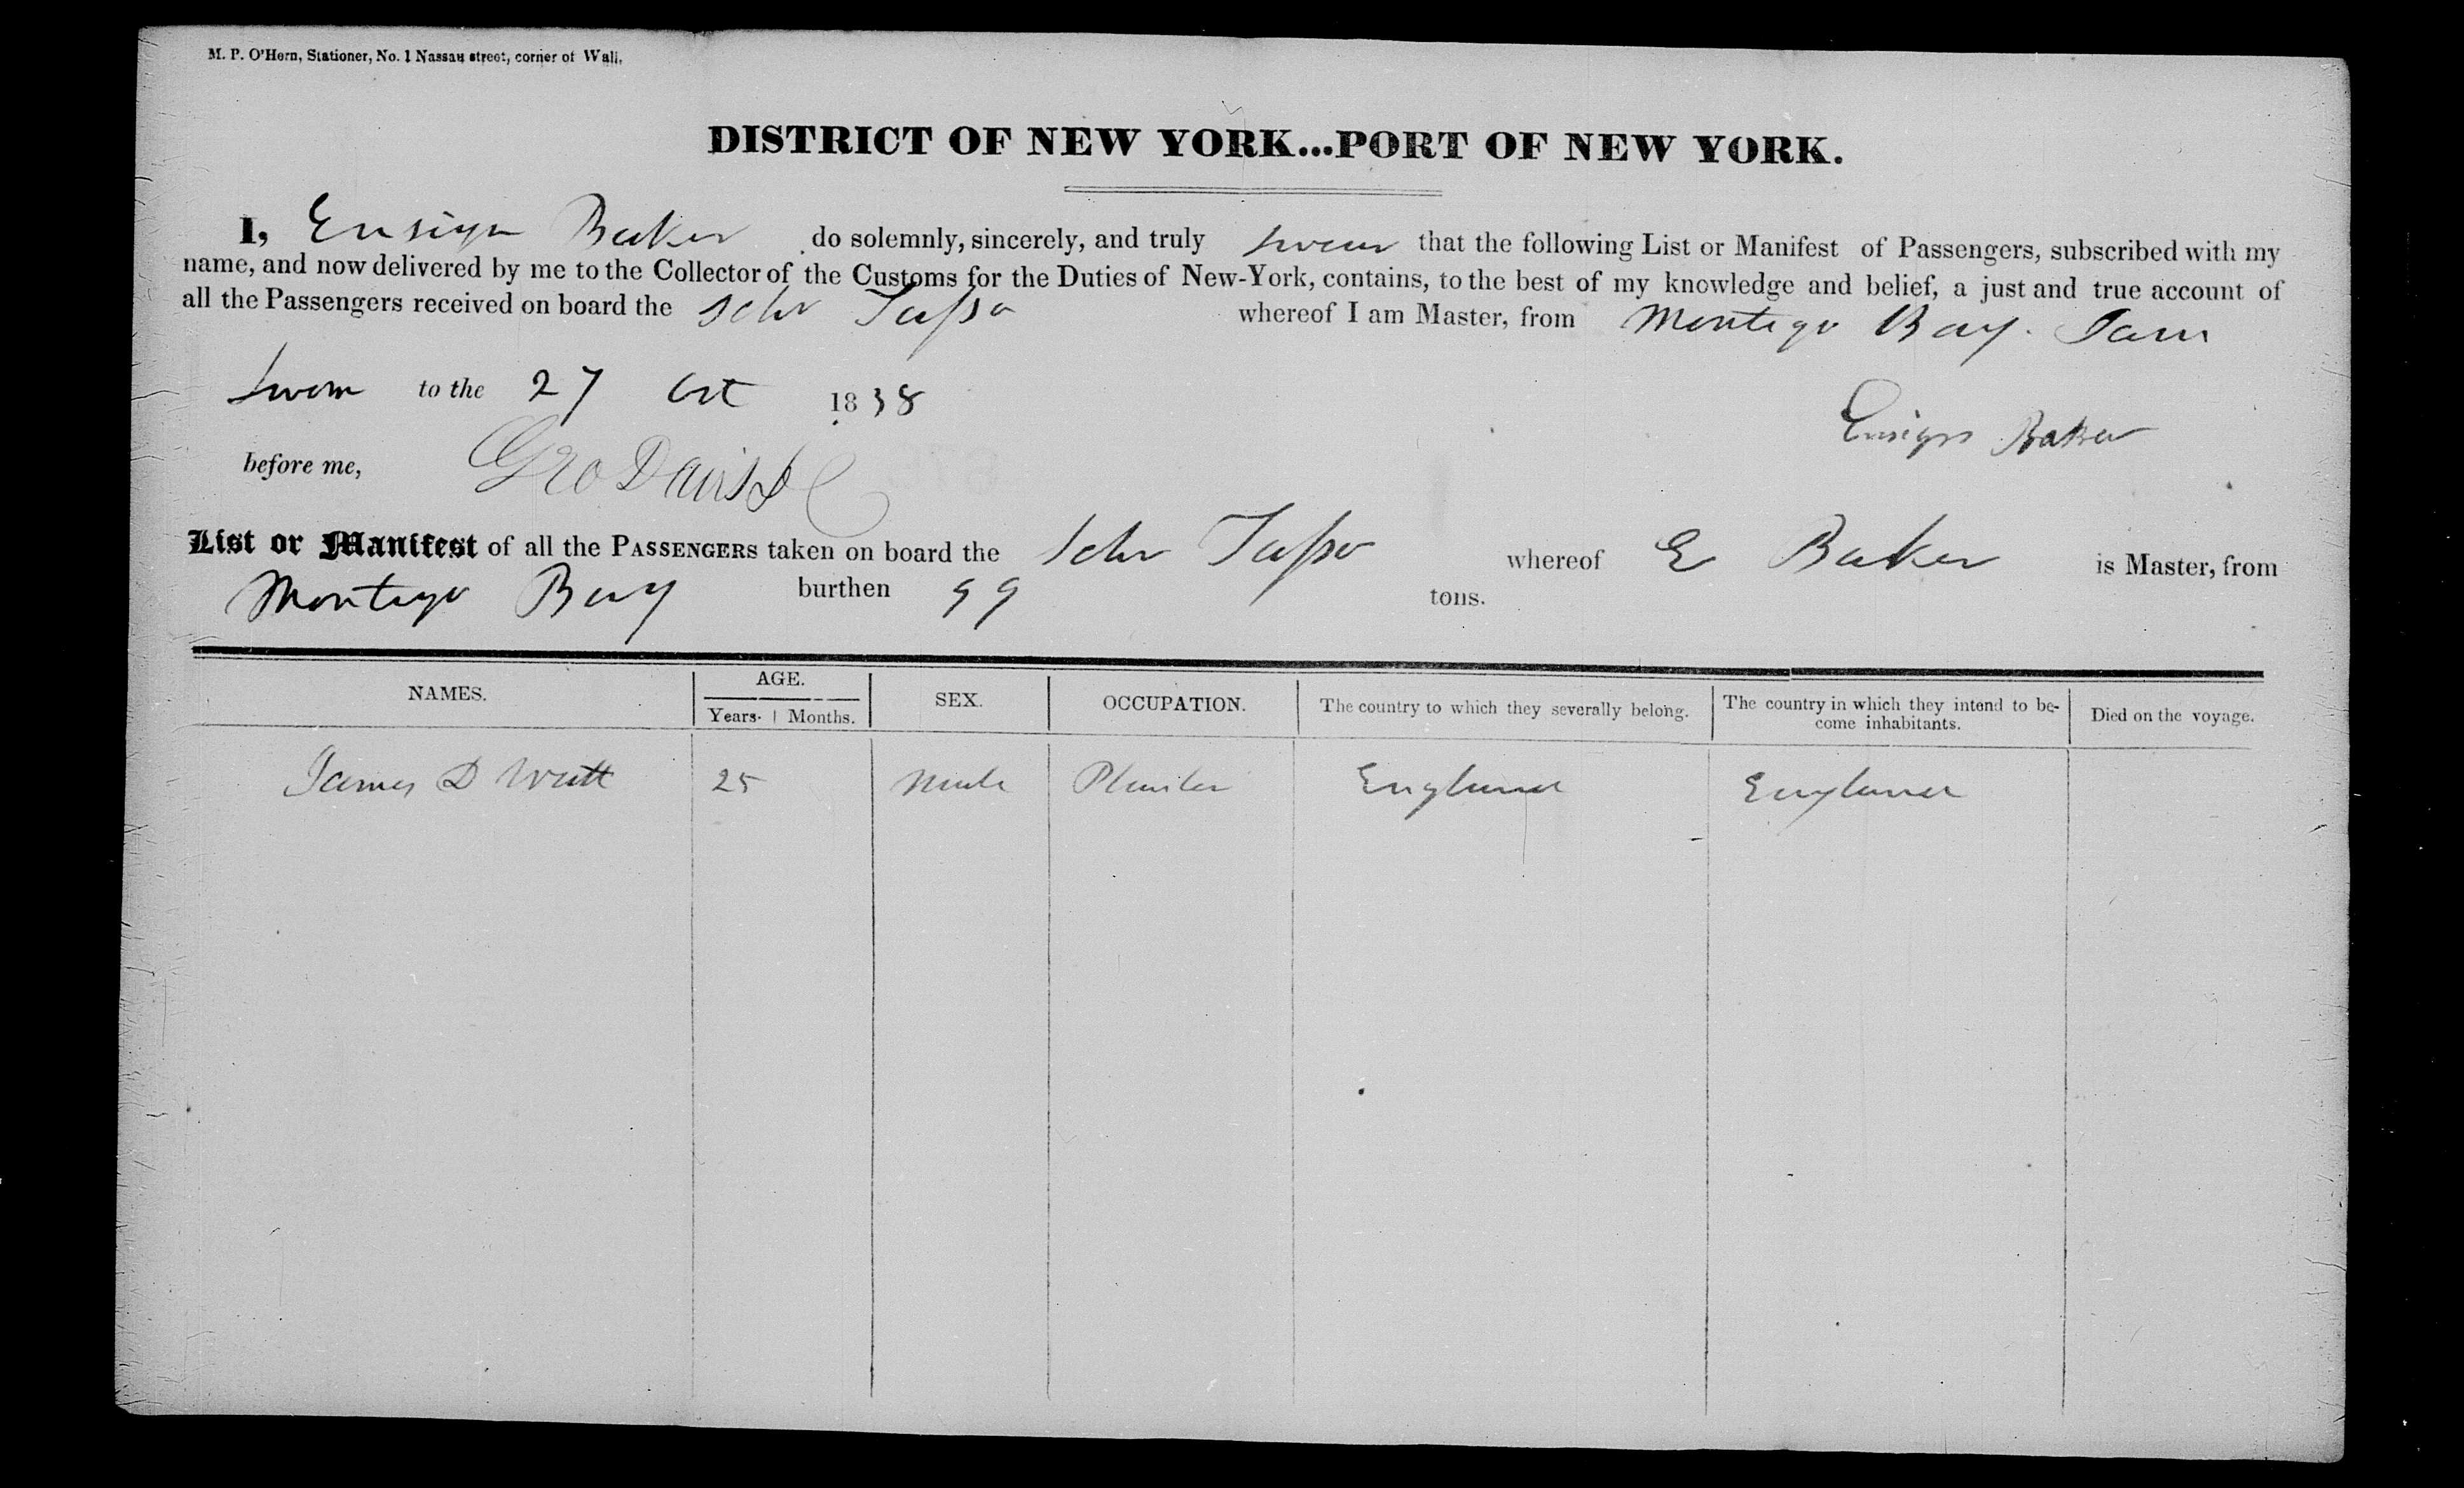 M. P. O'Hern, Stationer, No. 1 Nassau street, corner of Wall,
DISTRICT OF NEW YORK...PORT OF NEW YORK.
I, Ensign Baker do solemnly, sincerely, and truly swear that the following List or Manifest of Passengers, subscribed with my
name, and now delivered by me to the Collector of the Customs for the Duties of New-York, contains, to the best of my knowledge and belief, a just and true account of
all the Passengers received on board the Schr Tasso whereof I am Master, from Montego Bay. Jam
Sworn to the 27 Oct 1838
Ensign Baker
before me, Geo Davis
List or Manifest of all the PASSENGERS taken on board the Schr Tasso whereof E Baker is Master, from
Montego Bay burthen 99 tons.
NAMES. AGE. SEX. OCCUPATION. The country to which they severally belong. The country in which they intend to be-
come inhabitants. Died on the voyage.
Years. Months.
James D Watt 25 Male Planter England England